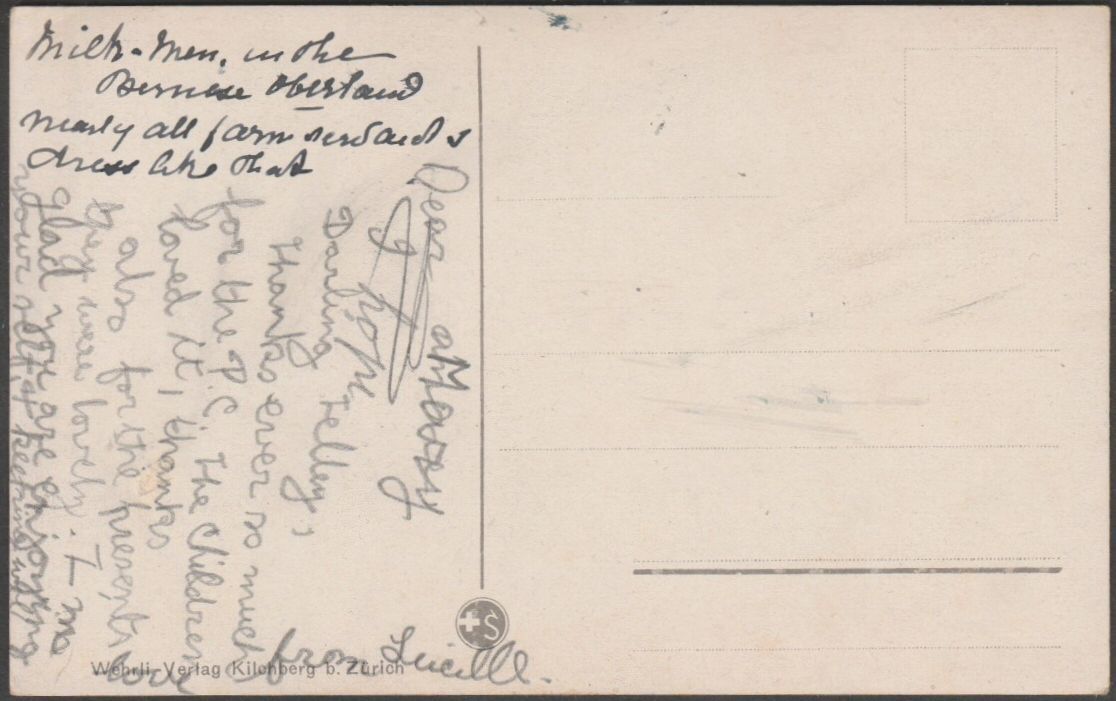 Milk-Men, in the
Bernese Oberland
nearly all farm servants
dress like that
Dear
I hope
Darling Telley,
Thanks ever so much
for the P.C. The children
loved it, thanks
also for the presents
they were lovely. I'm so
glad you are enjoying
yourself, & feeling
love
from Lucille.
Wehrli-Verlag Kilchberg b. Zürich
S